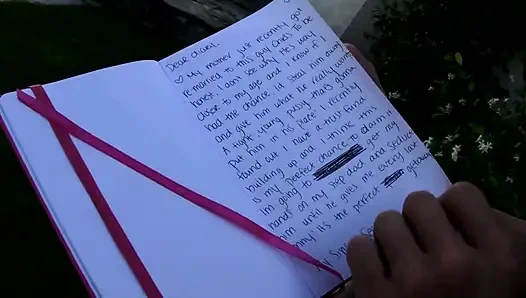 Dear diary,
♡ My mother just recently got
remarried to this guy Chris. To be
honest I can see why. He's way
closer to my age and I know if I
had the chance I'd steal him away
and give him what he really wants
A tight young pussy that's gonna
put him in his place. I recently
found out I have a trust fund
building up and I think this
is my perfect chance to claim it
I'm going to get my
hands on my step dad and seduce
him until he gives me every last
penny! It's the perfect getaway